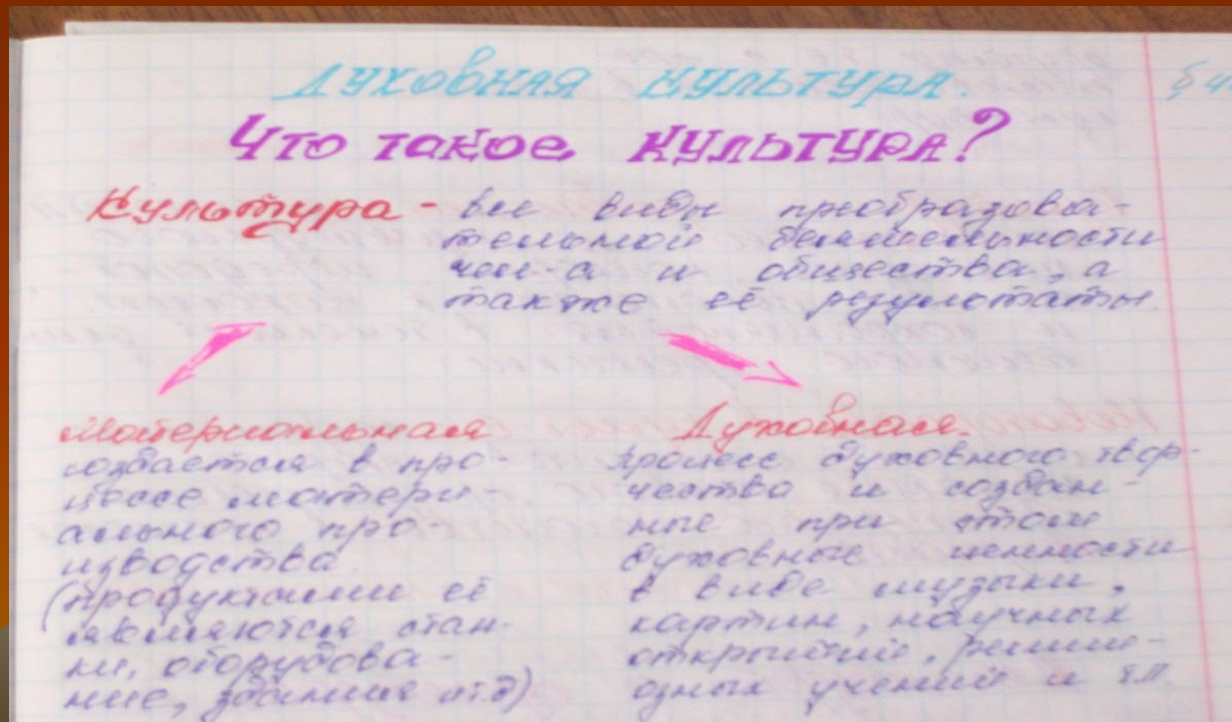 ДУХОВНАЯ КУЛЬТУРА.
Что такое КУЛЬТУРА?
Культура - все виды преобразова-
тельной деятельности
чел-а и общества, а
также её результаты.
Материальная
создаётся в про-
цессе матери-
ального про-
изводства
(продуктами её
являются стан-
ки, оборудова-
ние, здания итд)
Духовная.
процесс духовного твор-
чества и создан-
ные при этом
духовные ценности
в виде музыки,
картин, научных
открытий, религи-
озных учений и т.п.